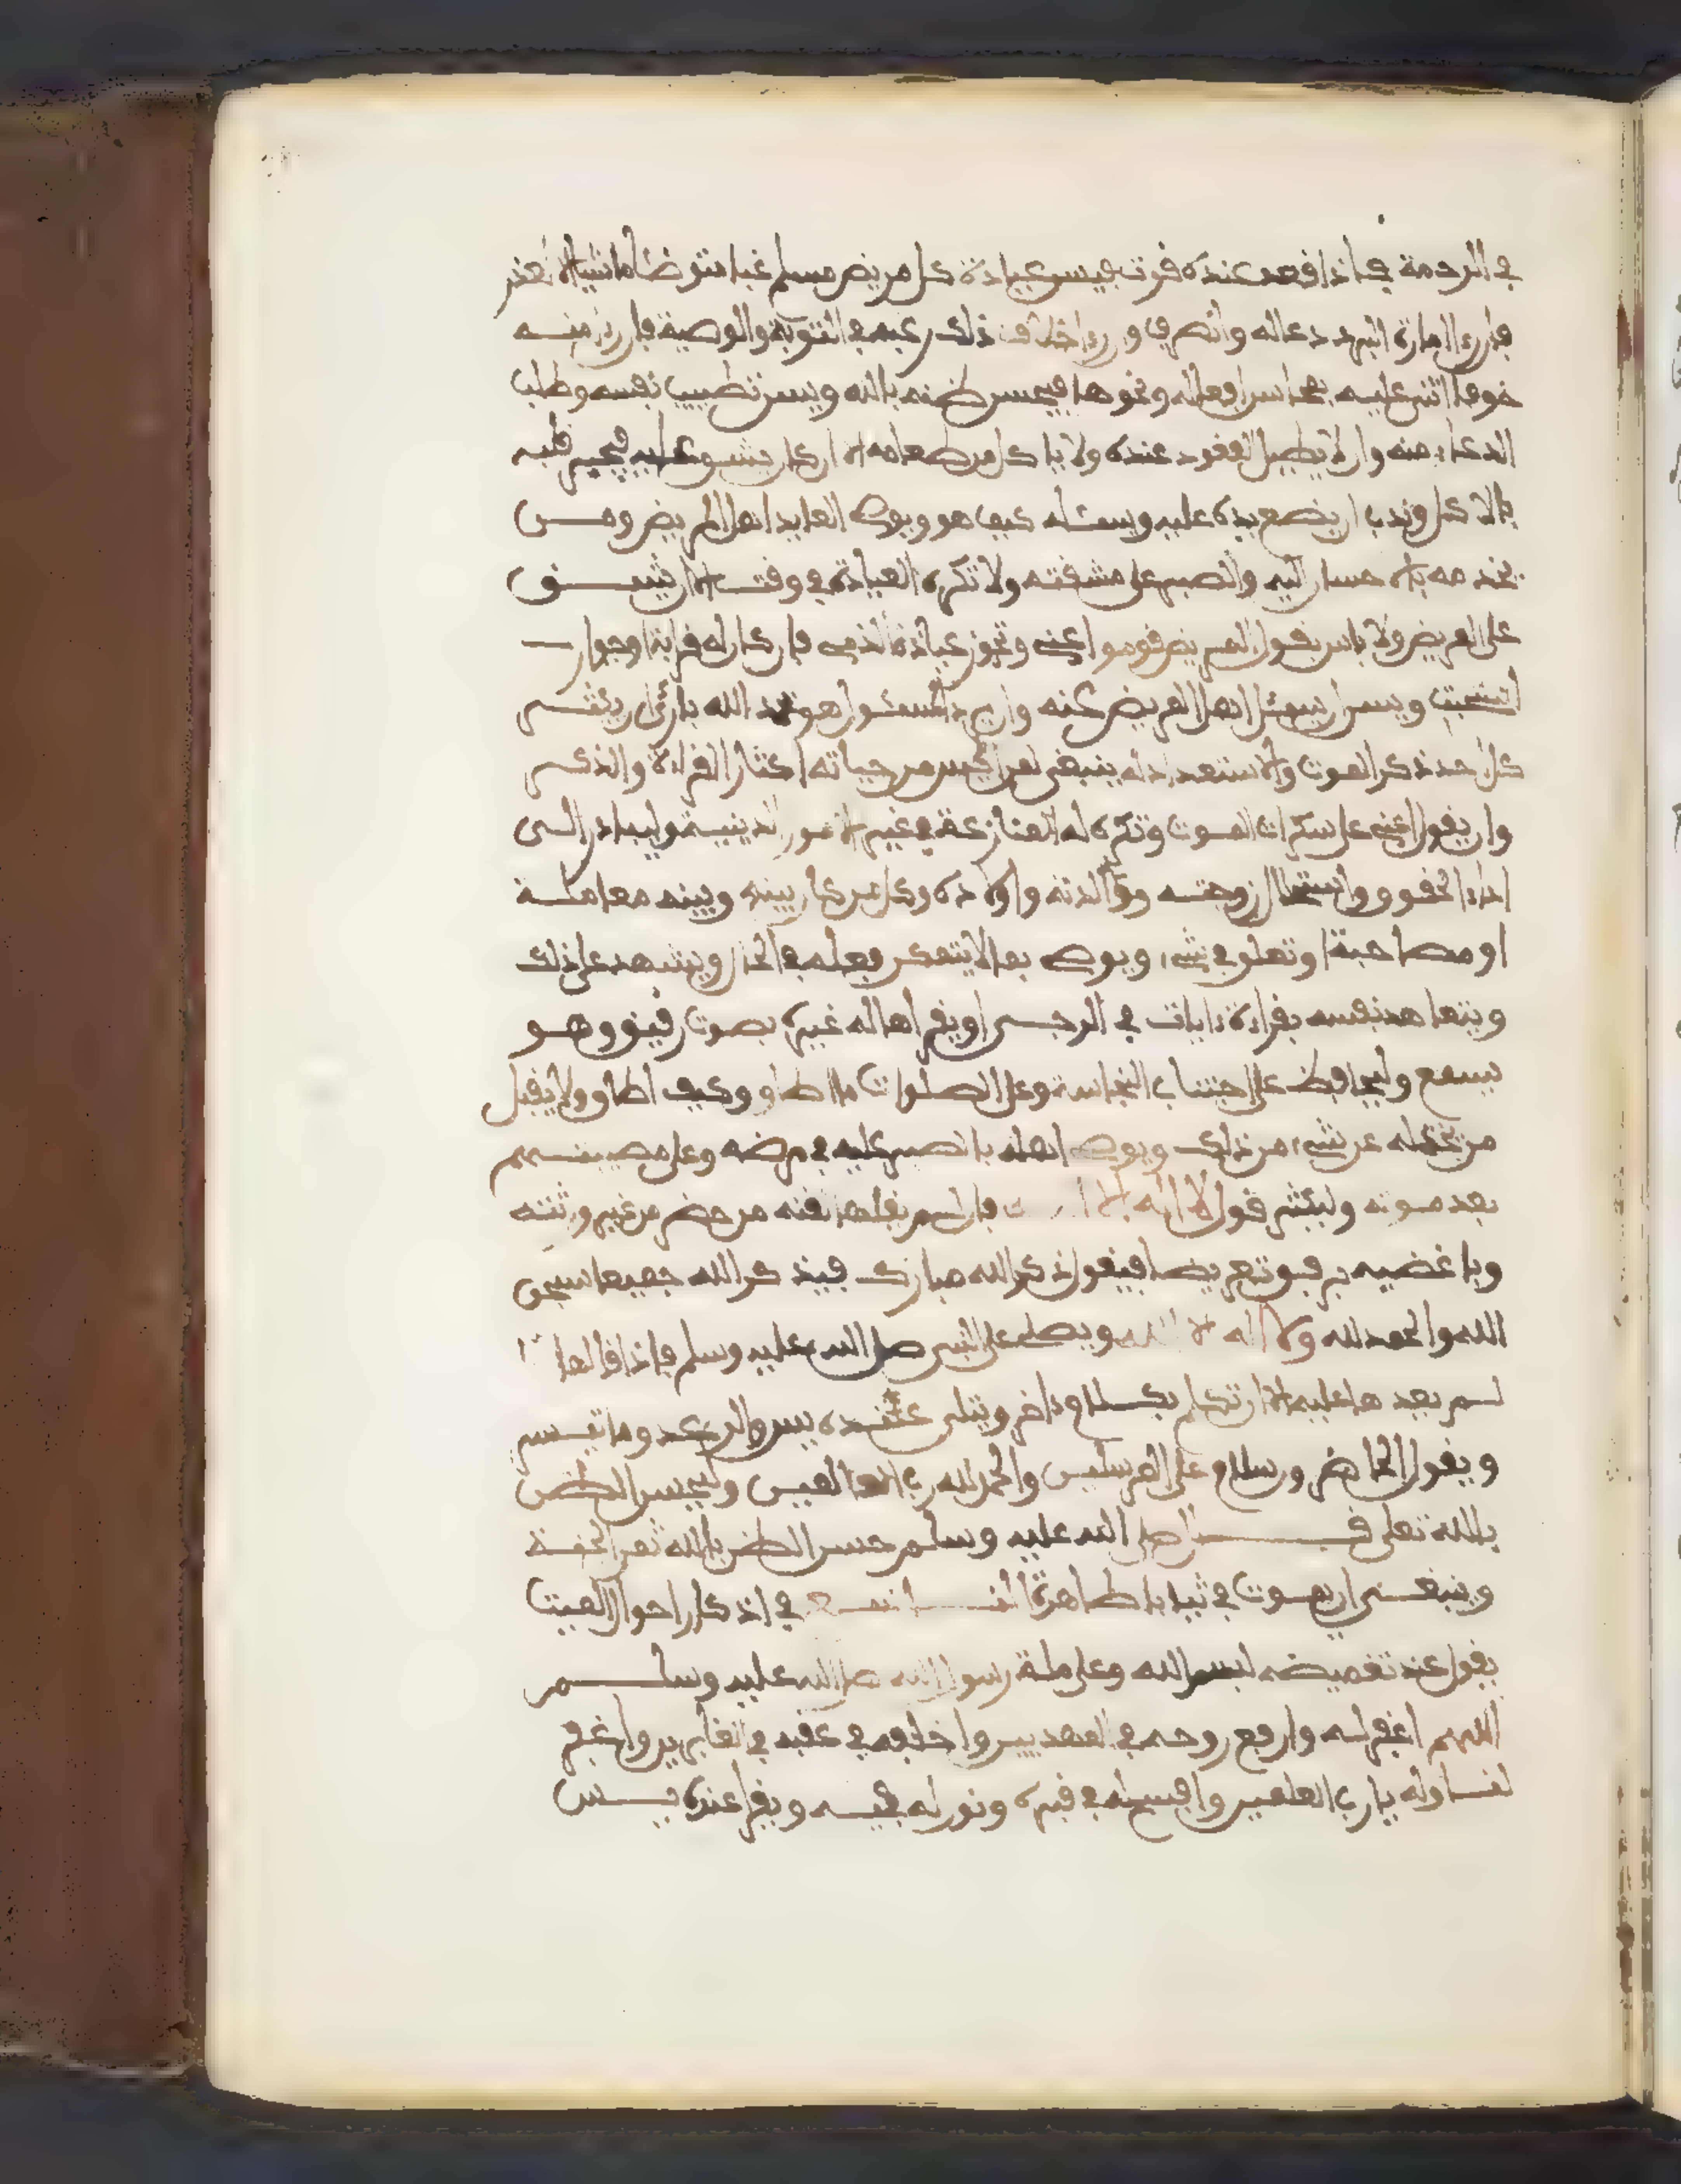 في الرحمة فإذا قعد عنده قوت فيسن عيادة كل مريض مسلم غبا متوضئا ماشيا إلا لعذر
فإن رءا امارة البرء دعا له وانصرف وإن رءا خلاف ذلك رغبه في التوبة والوصية فإن رءا منه
خوفا اثنى عليه بمحاسن افعاله ونحوها ليحسن ظنه بالله ويسن تطييب نفسه وطلب
الدعاء منه وان لا يطيل القعود عنده ولا ياكل من طعامه إلا ان كان يشو عليه فيجبر قلبه
بالاكل وندب ان يضع يده عليه ويسئله كيف هو ويوصي العايد اهل المريض ومن
يخدمه بالاحسان اليه والصبر على مشقته ولا تكره العيادة في وقت إلا ان يشق
على المريض ولا باس بقول المريض قوموا عني وتجوز عيادة الذمي فإن كان له قرابة او جوار
استحبت ويسن ان يسئل اهل المريض عنه وان يرد المسئول هو بحمد الله بارئا ان يكثر
كل احد ذكر الموت والاستعداد له ينبغي لمن ايس من حياته اكثار القراءة والذكر
وان يقول اعني على سكرات الموت وتكره له المنازعة في غير الامور الدينية وليبادر الى
اداء الحقوق واستحلال زوجته ووالدته واولاده وكل من كان بينه وبينه معاملة
او مصاحبة او تعلق في شيء ويوصي بما لا يتمكن فعله في الحال ويشهد على ذلك
ويتعاهد نفسه بقراءة ءايات في الرجى او يقراها له غيره بصوت رقيق وهو
يسمع وليحافظ على اجتناب النجاسة وعلى الصلوات ما اطاق وكيف اطاق ولا يقبل
من يخذله عن شيء من ذلك ويوصي اهله بالصبر عليه في مرضه وعلى مصيبتهم
بعد موته وليكثر قول لا إله إلا الله فإن لم يقلها لقنه من حضر من غير ورثته
وباغضيه برفق تعريضا فيقول ذكر الله مبارك فيذكر الله جميعا سبحن
الله والحمد لله ولا إله إلا الله ويصلي على النبي صلى الله عليه وسلم فإذا قالها
لم يعدها عليه إلا ان تكلم بكلام ءاخر ويتلى عنده يس والرعد وما تيسر
ويقول الحاضر وسلام على المرسلين والحمد لله رب العالمين وليحسن الظن
بالله تعلى قال صلى الله عليه وسلم حسن الظن بالله ثمن الجنة
وينبغي ان يموت في ثياب طاهرة في اذكار احوال الميت
يقول عند تغميضه بسم الله وعلى ملة رسول الله صلى الله عليه وسلم
اللهم اغفر له وارفع روحه في المهديين واخلفه في عقبه في الغابرين واغفر
لنا وله يا رب العلمين وافسح له في قبره ونور له فيه ويقرا عنده يس